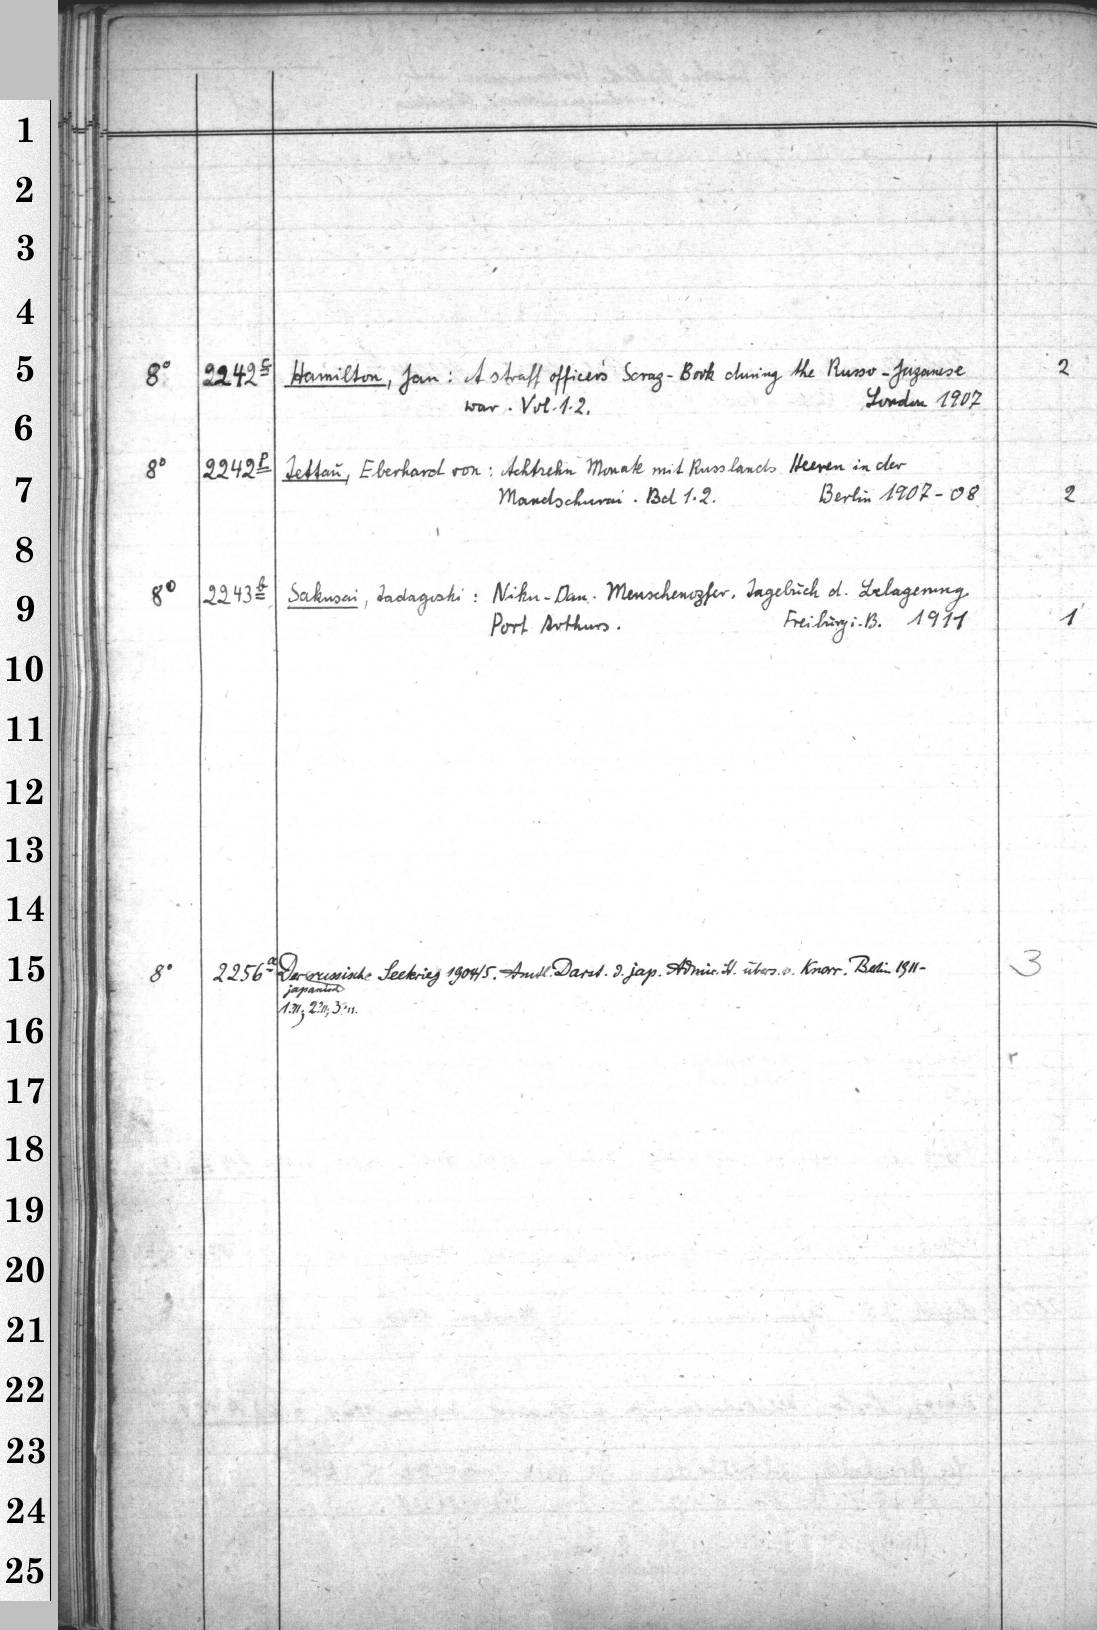 1
2
3
4
5
8° 2242 Hamilton, Jan: A straff officers Scrap-Book during the Russo-Japanese 2
war. Vol. 1.2. London 1907
6
8° 2242p Tettau, Eberhard von: Achtzehn Monate mit Russlands Heeren in der
7
Mandschurai. Bd 1.2. Berlin 1907-08 2
8
8° 2243b Sakusai, Tadagoshi: Niku-Dan. Menschenopfer. Tagebuch d. Belagerung
9
Port Arthurs. Freiburg i. B. 1911 1
10
11
12
13
14
15
8° 2256a Der russische Seekrieg 1904/5. Amtl. Darst. d. jap. Admir. St. übers. v. Knorr. Berlin 1911- 3
japanisch
16
17
18
19
20
21
22
23
24
25